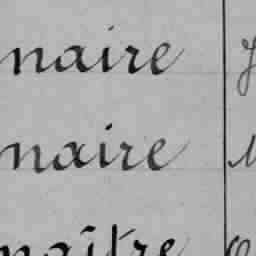 naire
naire
naître